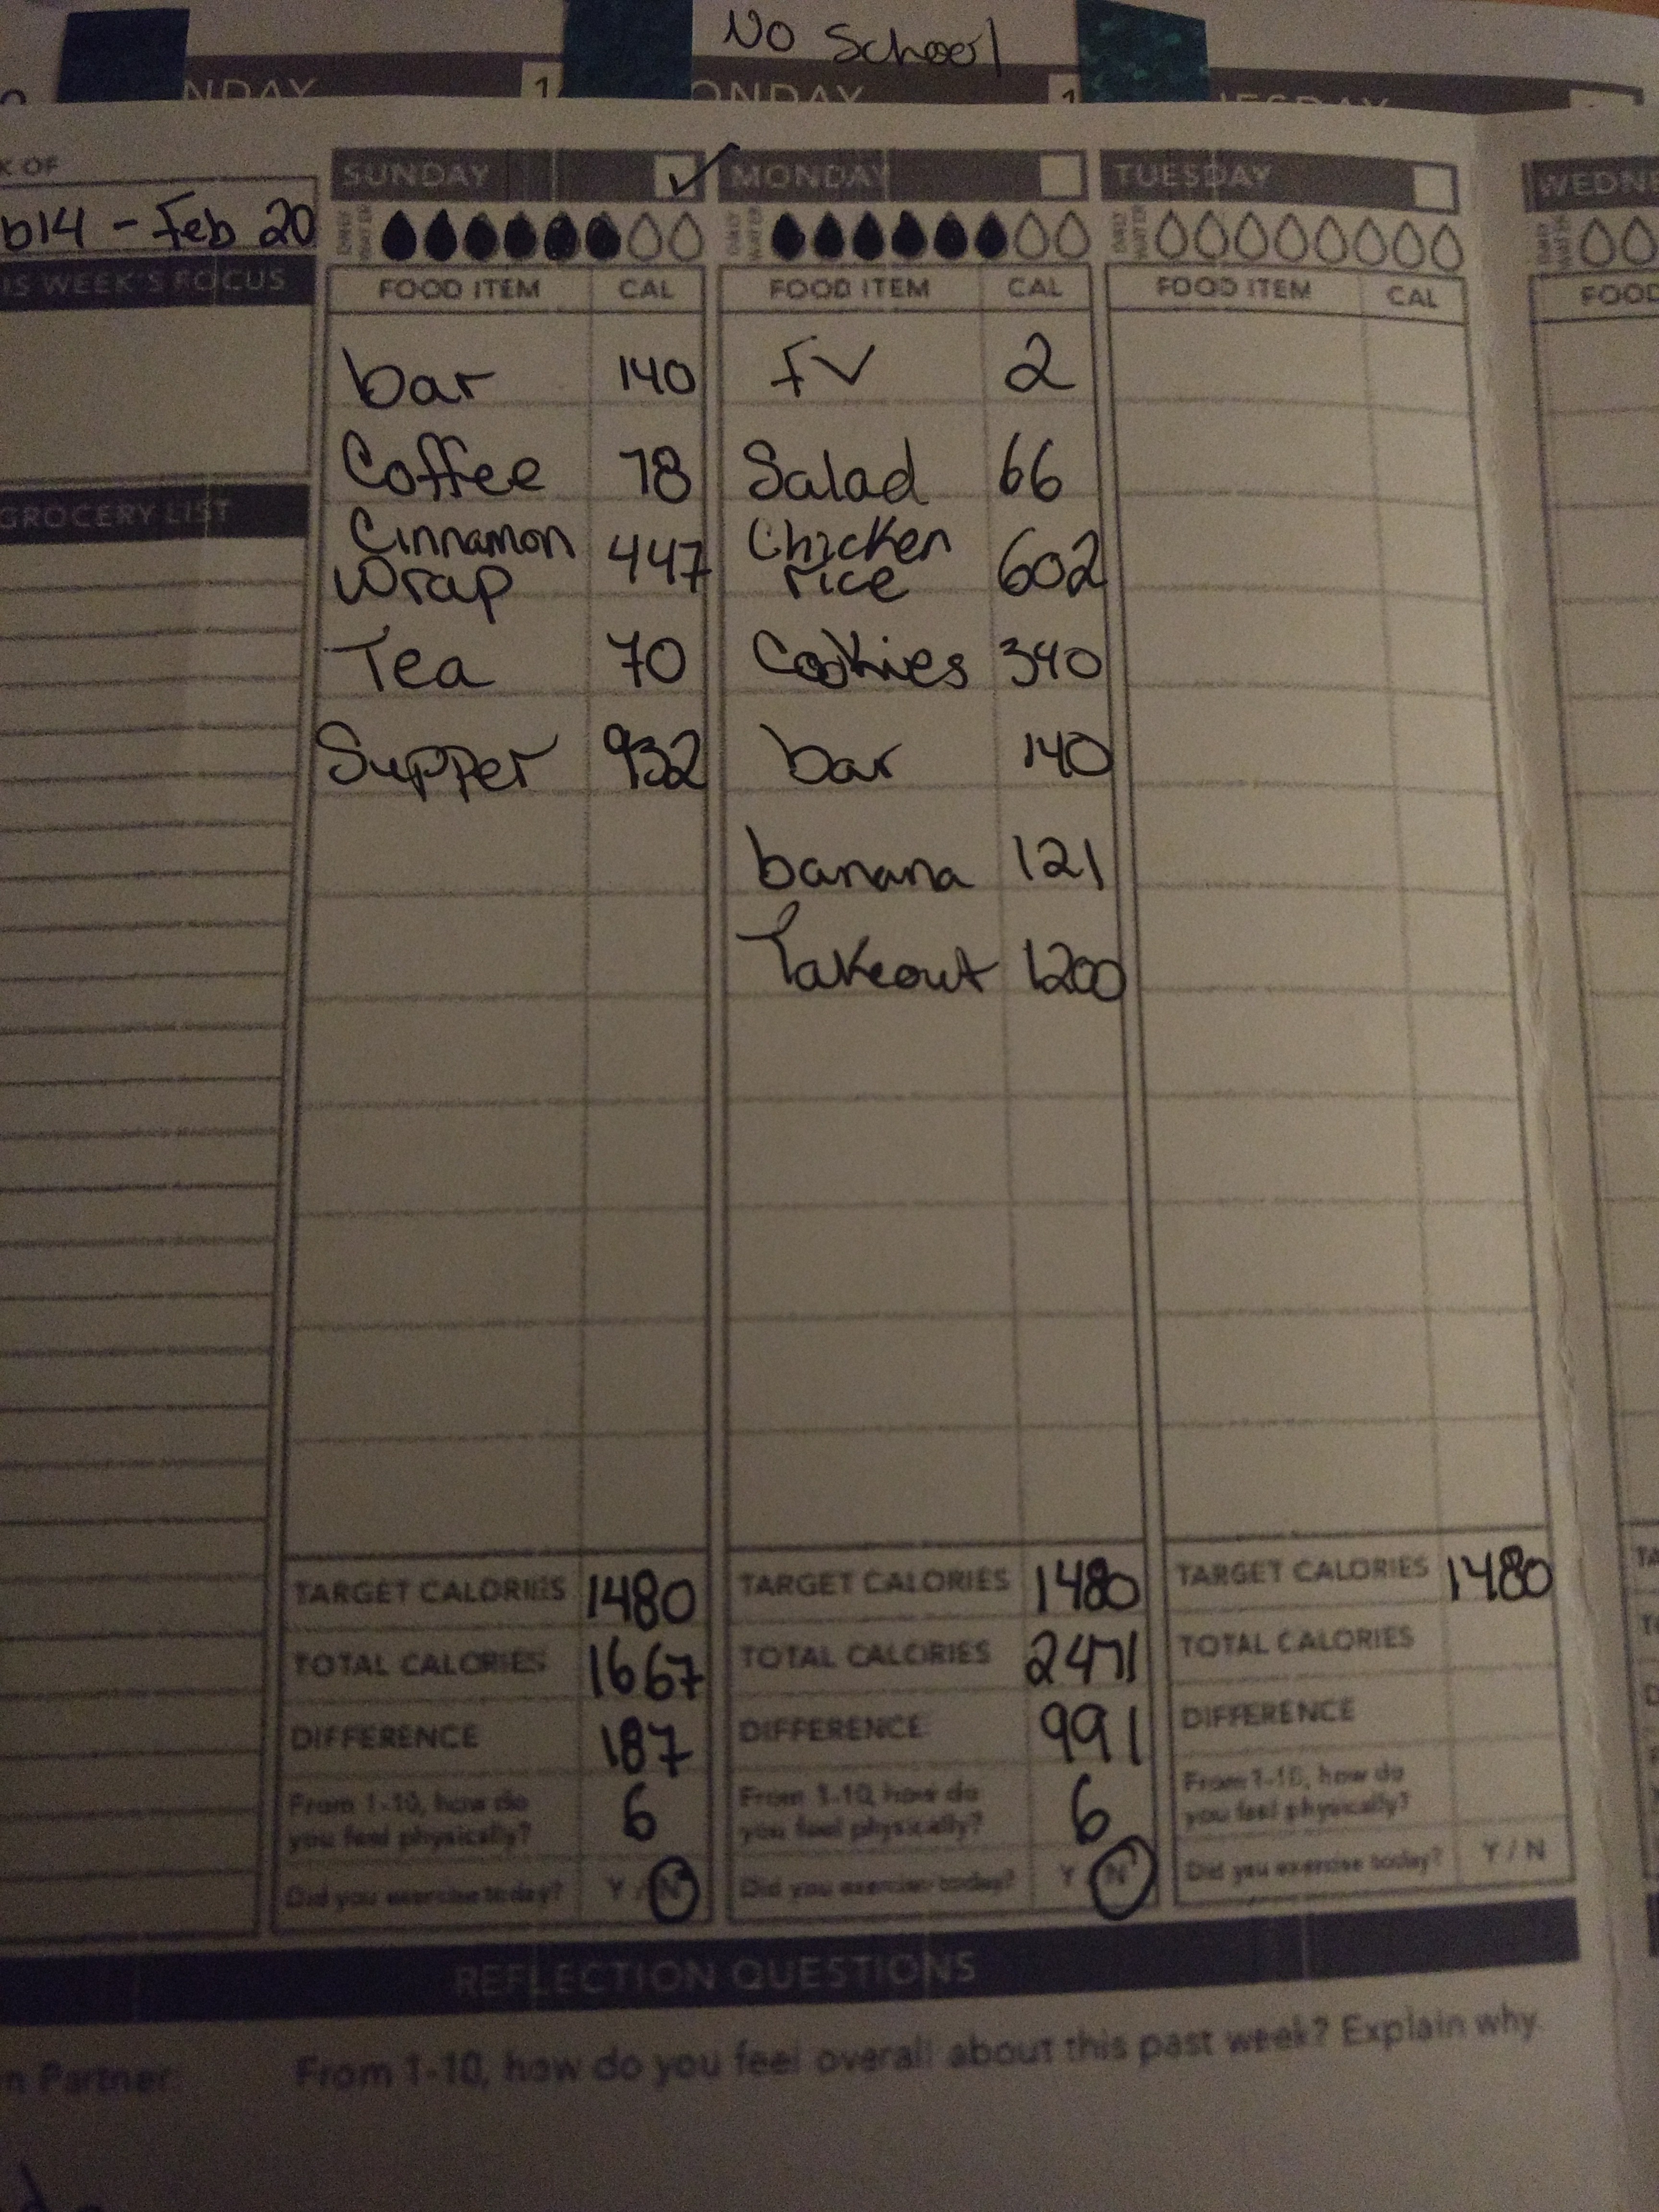 No School
NDAY 1 ONDAY 1 UESDAY
K OF
b14 - Feb 20
IS WEEK'S FOCUS
GROCERY LIST
SUNDAY
DAILY WATER
FOOD ITEM CAL
bar 140
Coffee 78
Cinnamon
Wrap 447
Tea 70
Supper 932
TARGET CALORIES 1480
TOTAL CALORIES 1667
DIFFERENCE 187
From 1-10, how do
you feel physically? 6
Did you exercise today? Y / N
MONDAY
DAILY WATER
FOOD ITEM CAL
FV 2
Salad 66
Chicken
rice 602
Cookies 340
bar 140
banana 121
Takeout 1200
TARGET CALORIES 1480
TOTAL CALORIES 2471
DIFFERENCE 991
From 1-10, how do
you feel physically? 6
Did you exercise today? Y / N
TUESDAY
DAILY WATER
FOOD ITEM CAL
TARGET CALORIES 1480
TOTAL CALORIES
DIFFERENCE
From 1-10, how do
you feel physically?
Did you exercise today? Y / N
WEDNE
FOOD
TA
REFLECTION QUESTIONS
n Partner
From 1-10, how do you feel overall about this past week? Explain why.